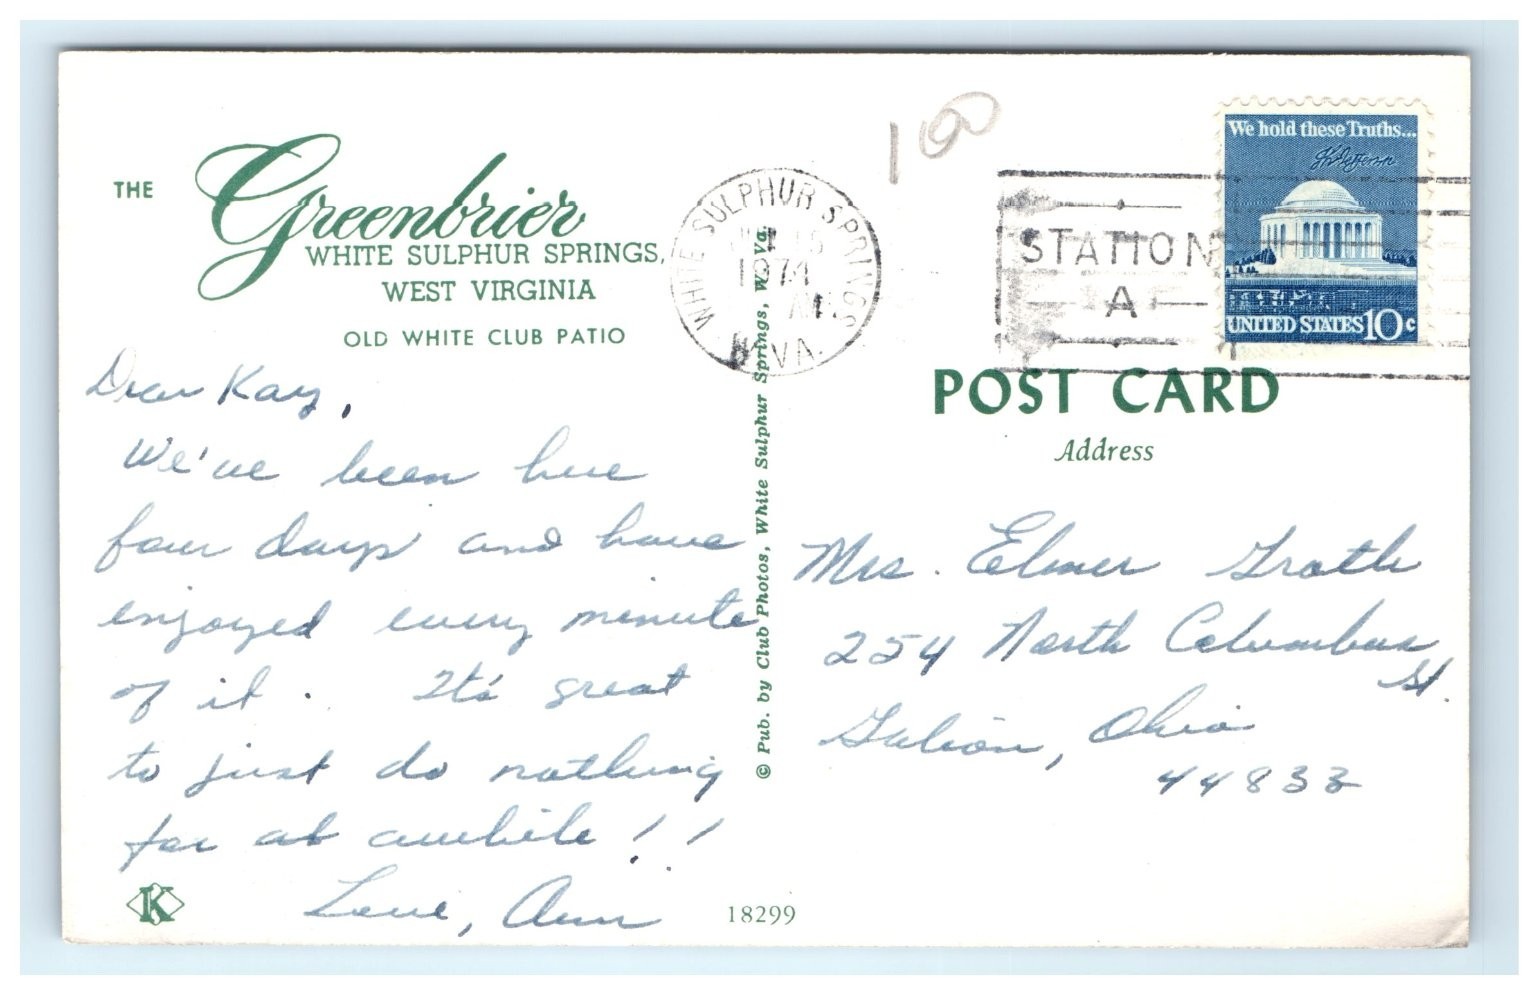 THE
Greenbrier
WHITE SULPHUR SPRINGS,
WEST VIRGINIA
OLD WHITE CLUB PATIO
Dear Kay,
We've been here
four days and have
enjoyed every minute
of it. It's great
to just do nothing
for awhile!!
Love, Ann
K
18299
© Pub. by Club Photos, White Sulphur Springs, W. Va.
WHITE SULPHUR SPRINGS
15
1974
AM
W. VA.
100
STATION
A
We hold these Truths...
Th Jefferson
UNITED STATES 10c
POST CARD
Address
Mrs. Elmer
254 North Columbus
St.
Galion, Ohio
44833